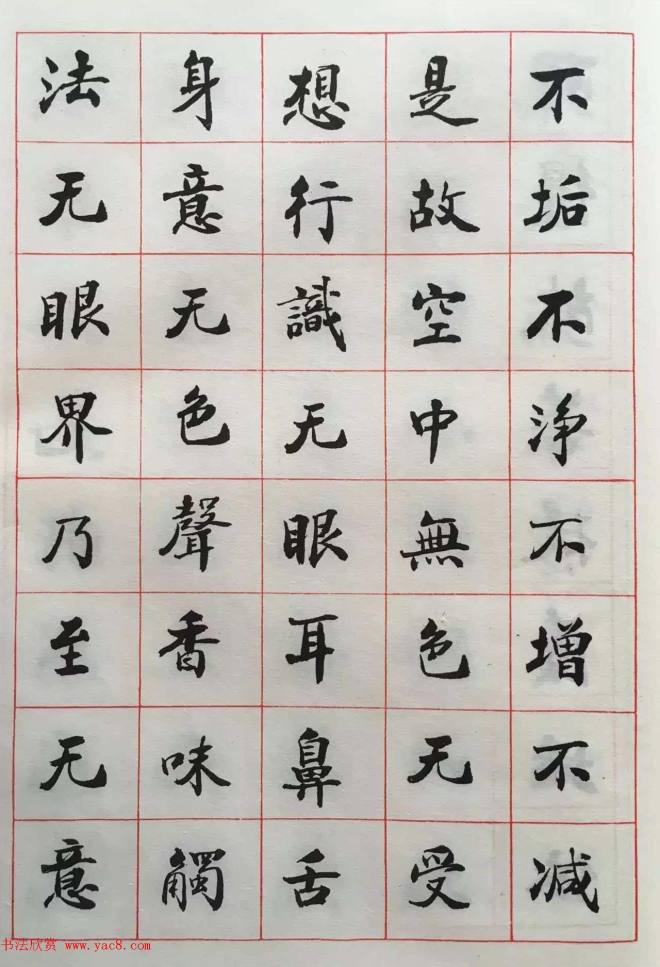 不垢不净不增不减
是故空中無色无受
想行識无眼耳鼻舌
身意无色聲香味觸
法无眼界乃至无意
书法欣赏 www.yac8.com